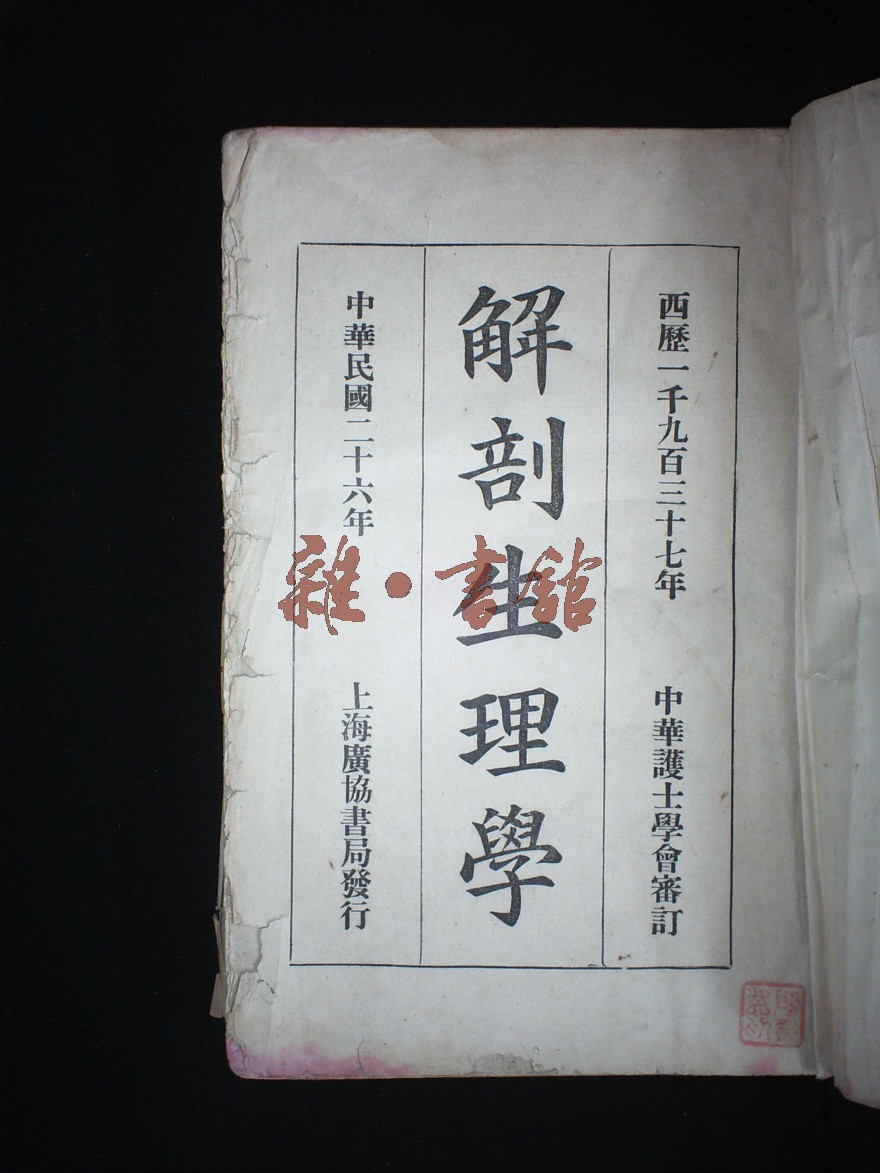 西歷一千九百三十七年
中華護士學會審訂
解剖生理學
中華民國二十六年
上海廣協書局發行
雜·書館